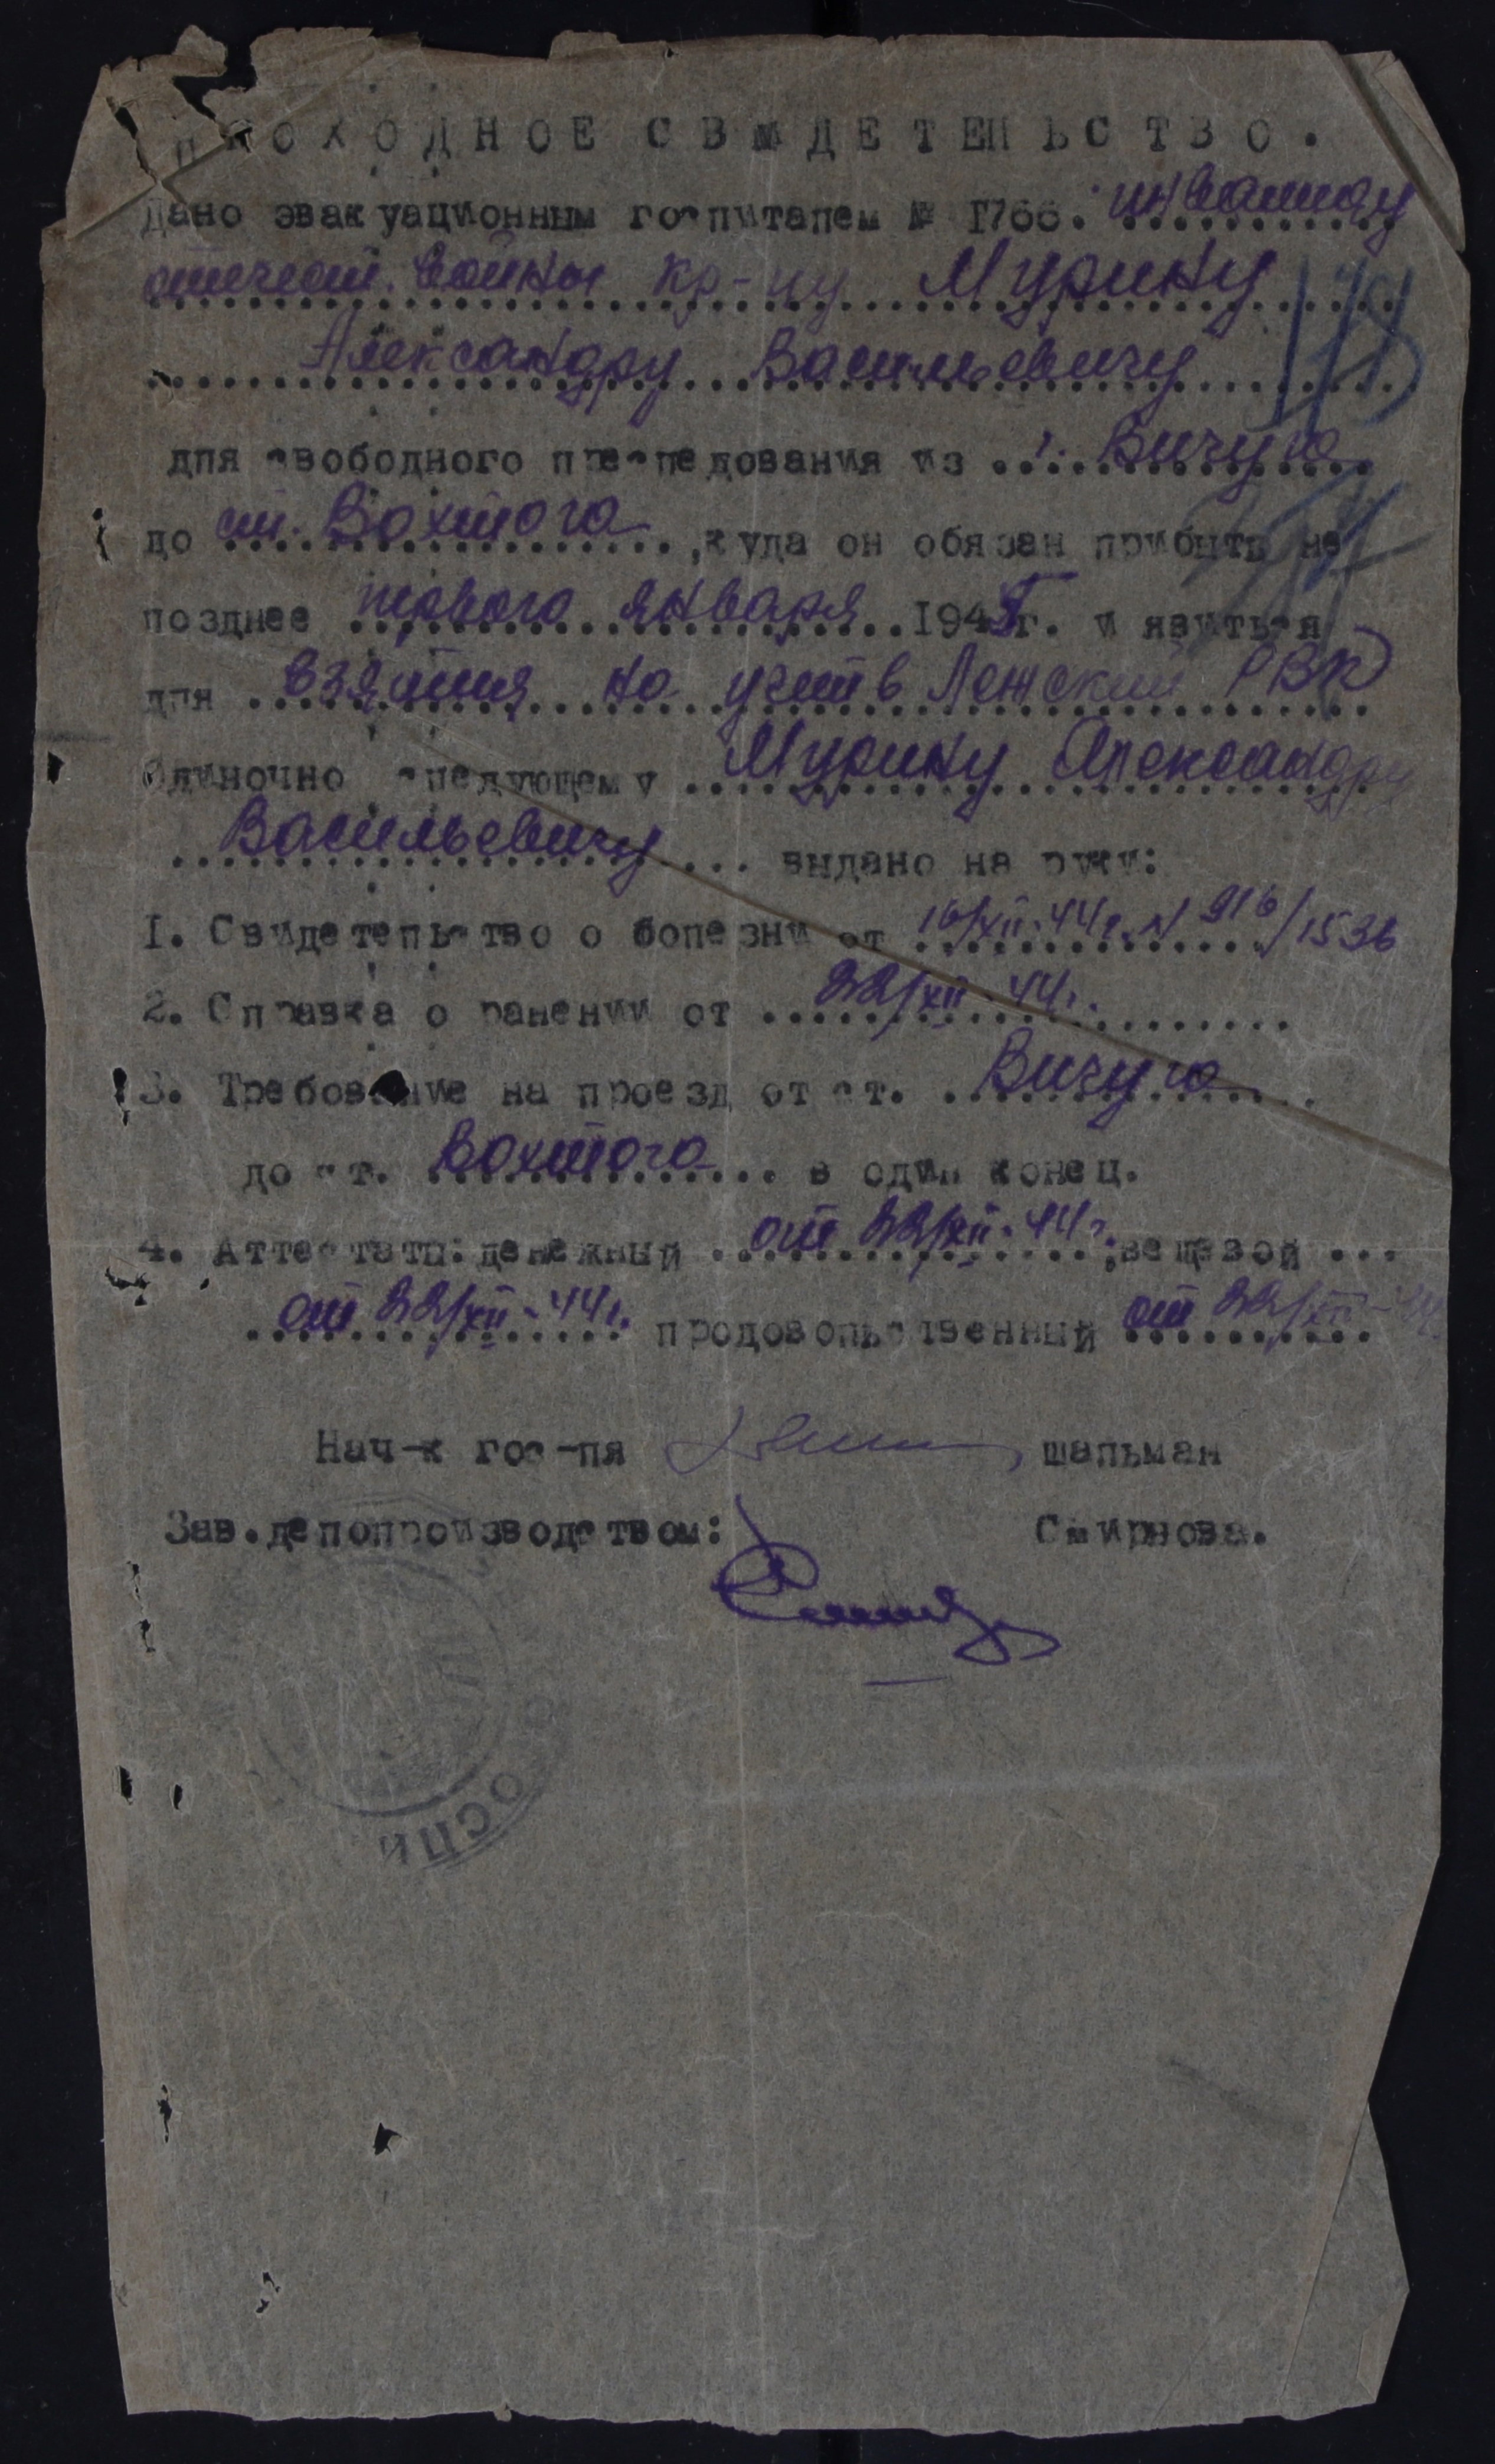 ПРОХОДНОЕ СВИДЕТЕЛЬСТВО.
Дано эвакуационным госпиталем № 1766. инвалиду
отечеств. войны кр-цу Мурину
Александру Васильевичу
для свободного преследования из г. Вичуга
до ст. Вохтога, куда он обязан прибыть не
позднее первого января 1945г. и явиться
для взятия на учет в Лежский РВК
Одиночно следующему Мурину Александру
Васильевичу выдано на руки:
1. Свидетельство о болезни от 16/XII-44г. N 916/1536
2. Справка о ранении от 22/XII-44г.
3. Требование на проезд от ст. Вичуга
до ст. Вохтога в один конец.
4. Аттестаты: денежный от 22/XII-44г., вещевой ...
от 22/XII-44г. продовольственный от 22/XII-44
Нач-к гос-ля Шальман
Зав.делопроизводством: Смирнова.
ОСПИ